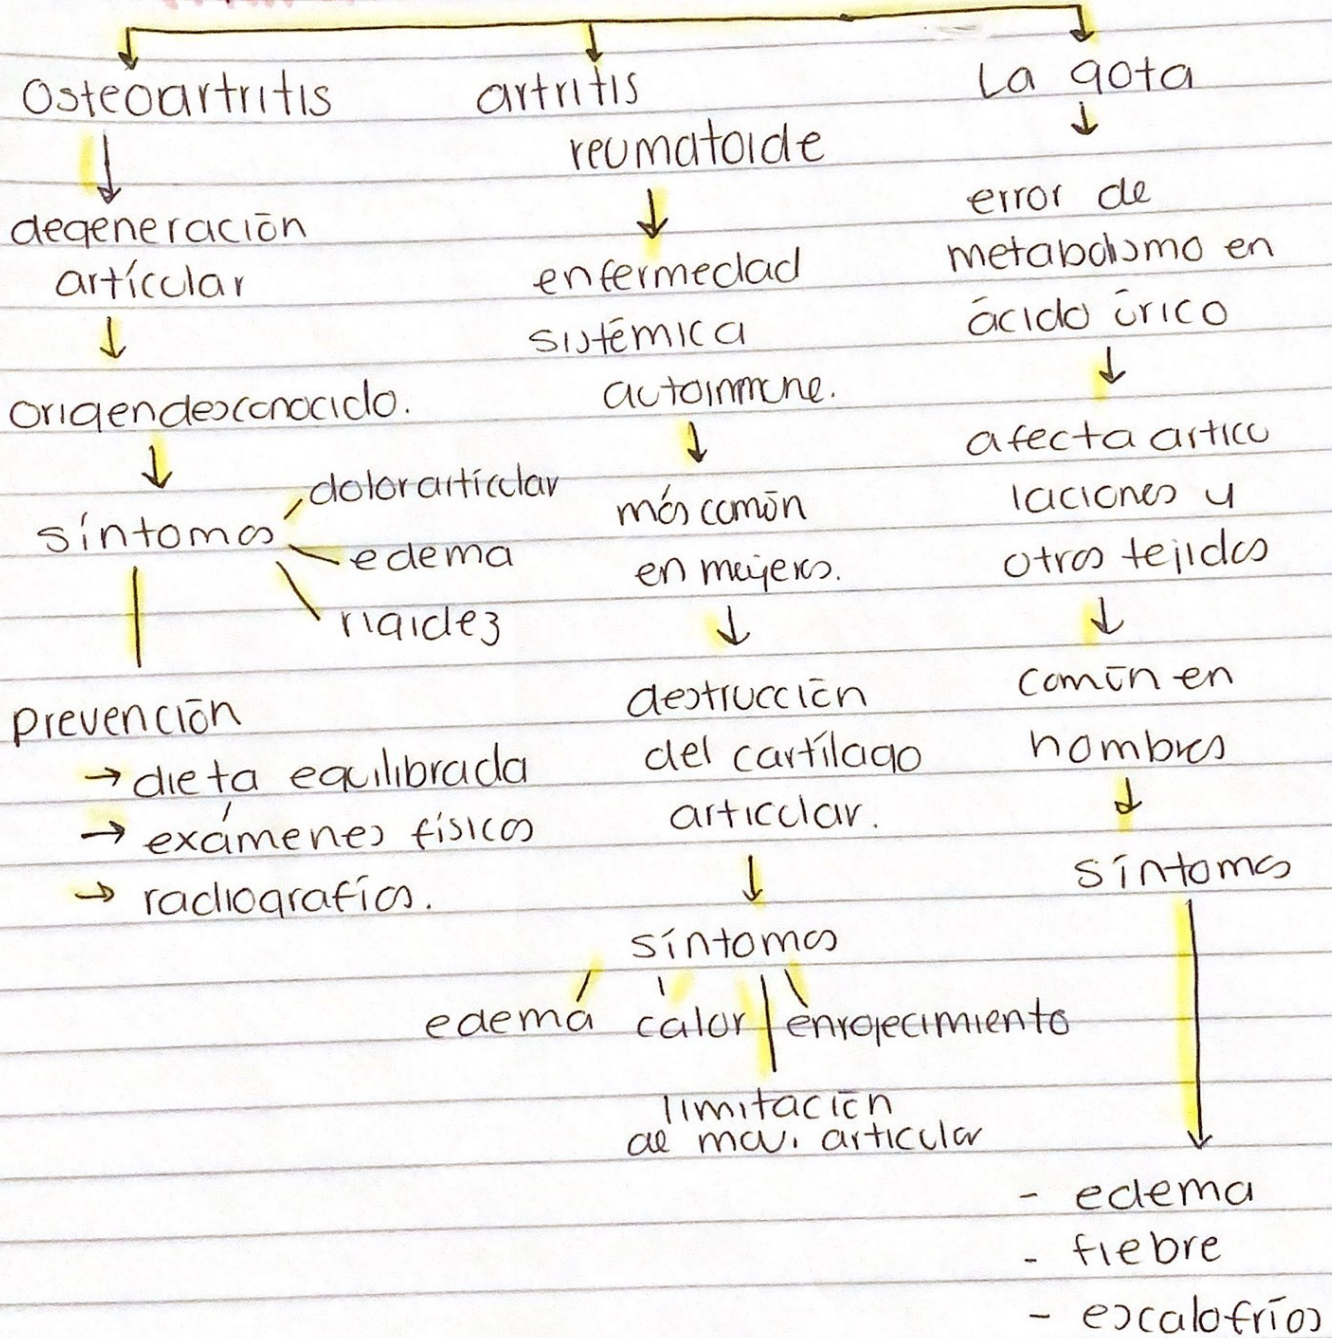 Osteoartritis
degeneración
artícular
origen desconocido.
síntomas
dolor artícular
edema
rigidez
prevención
→ dieta equilibrada
→ exámenes físicos
→ radiografías.
artritis
reumatoide
enfermedad
sistémica
autoinmune.
más común
en mujeres.
destrucción
del cartílago
articular.
síntomas
edema calor enrojecimiento
limitación
de mov. articular
La gota
error de
metabolismo en
ácido úrico
afecta articu
laciones y
otros tejidos
común en
hombres
síntomas
- edema
- fiebre
- escalofríos